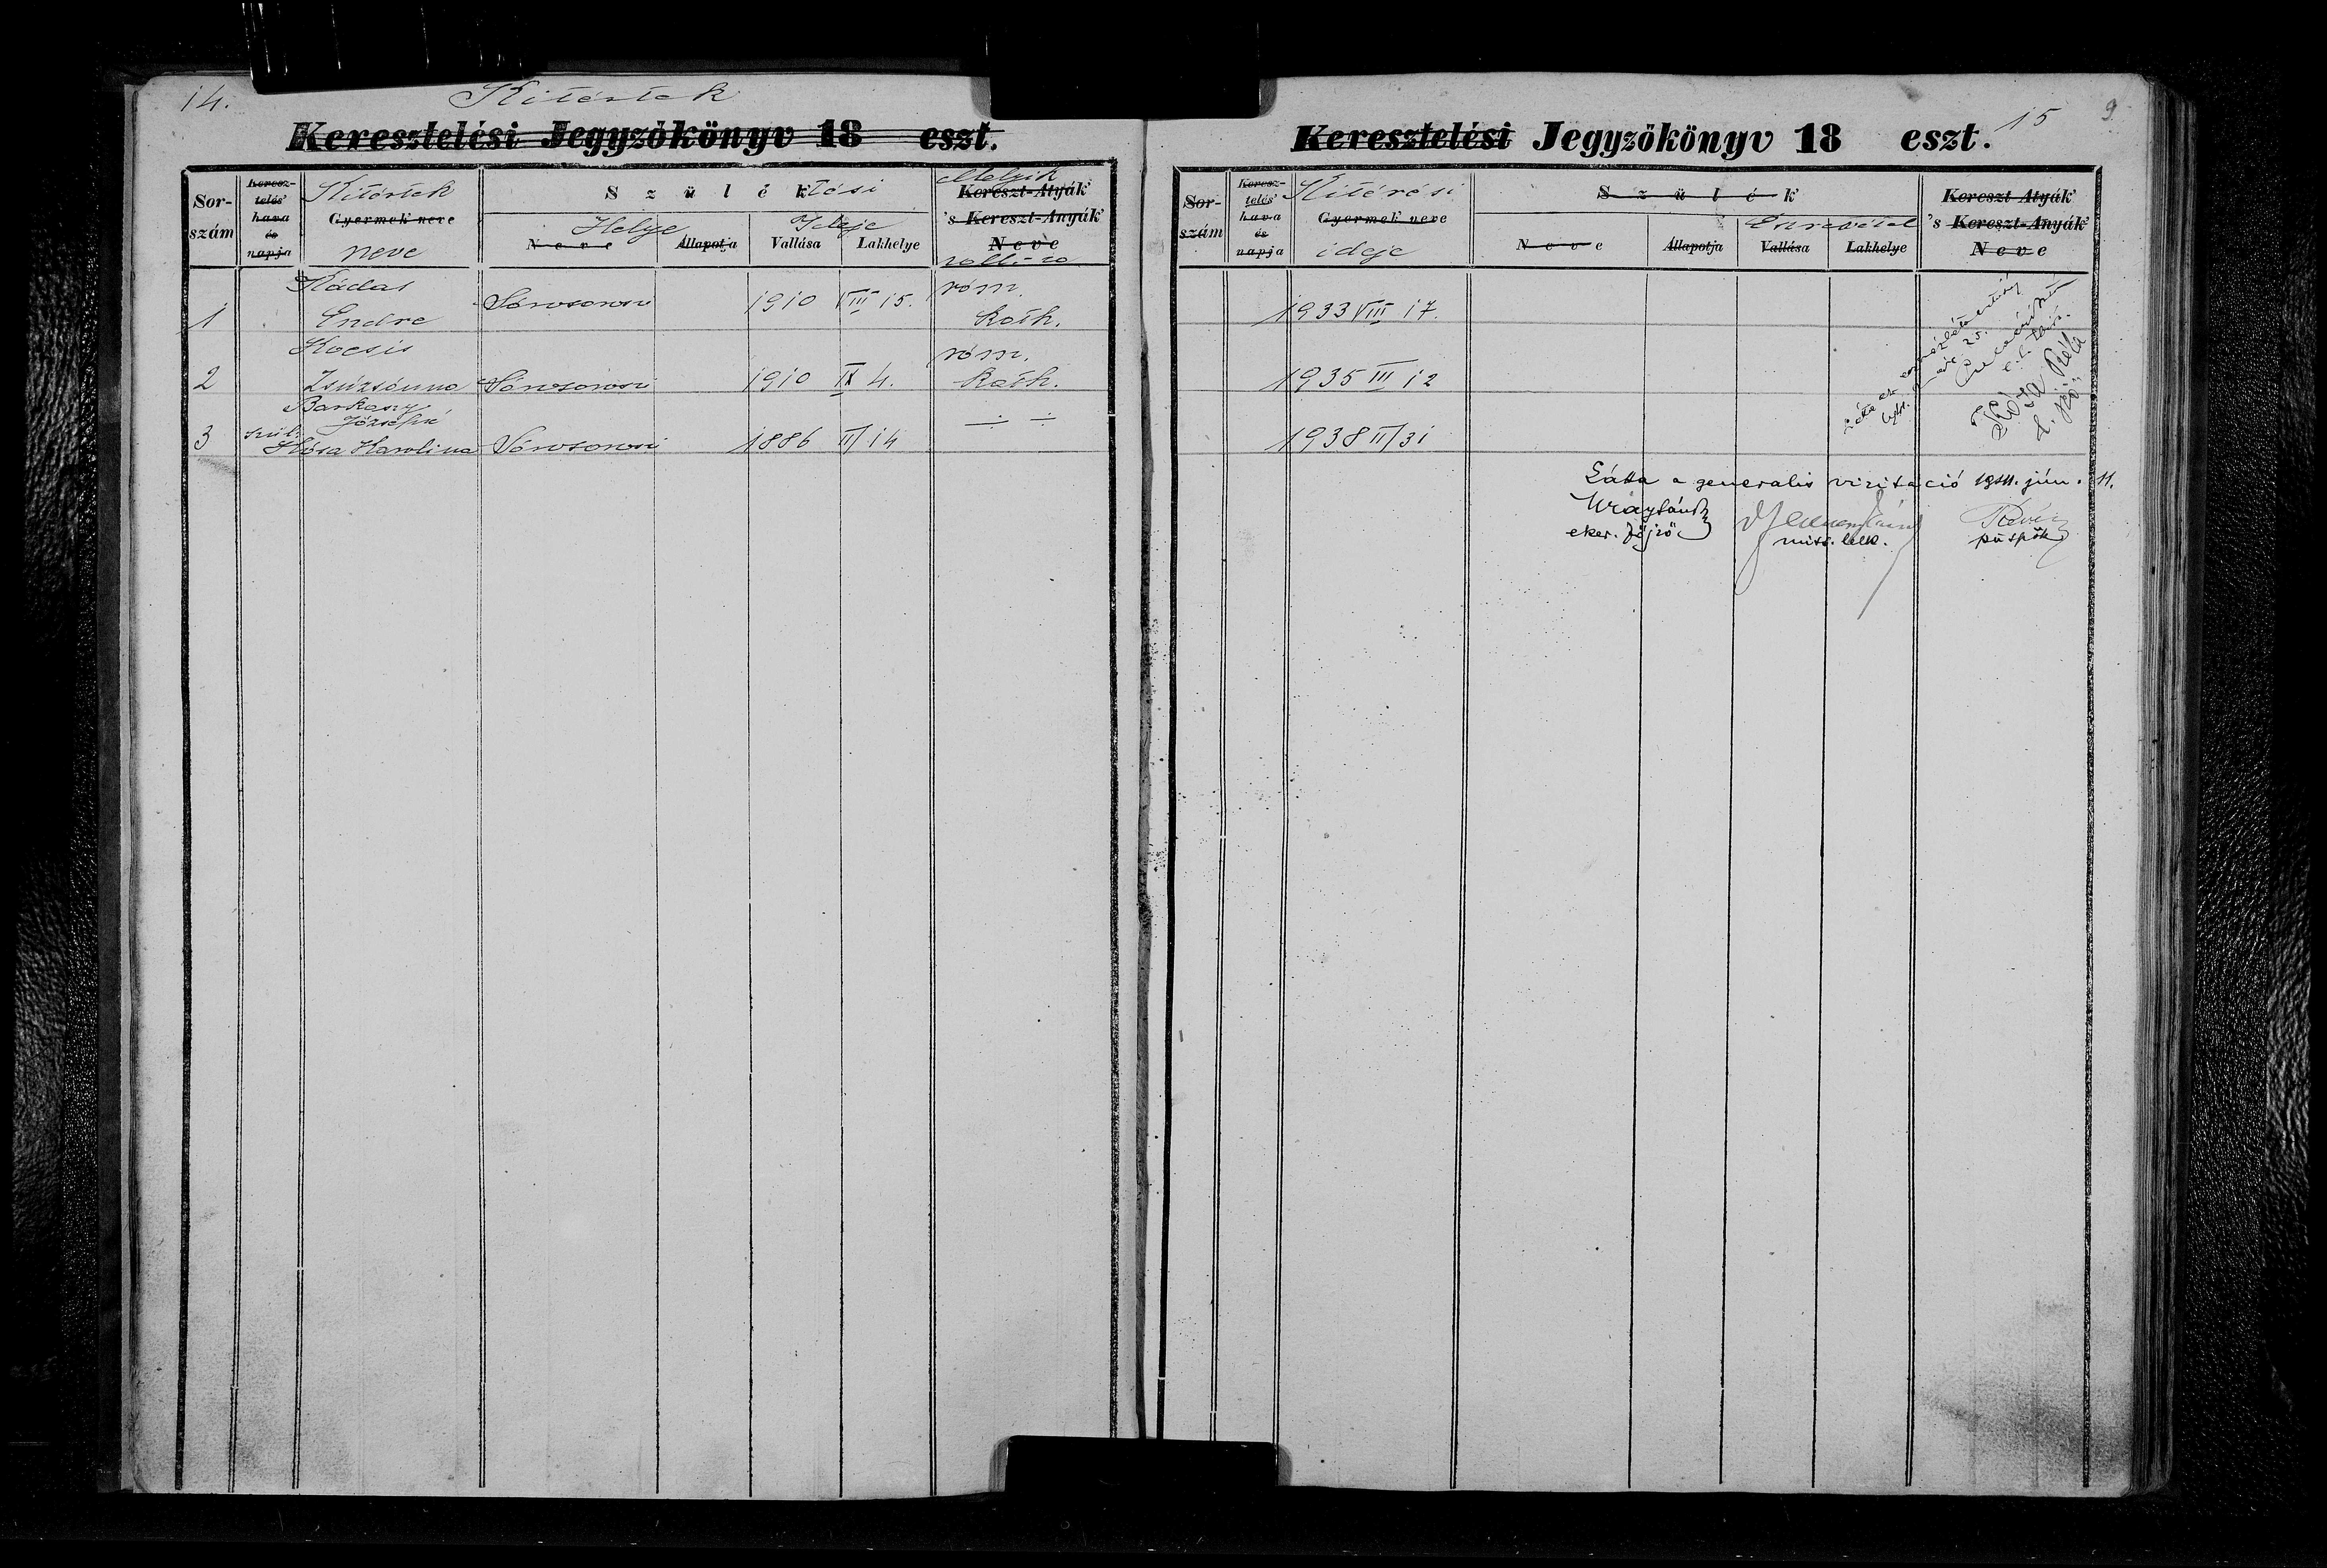 14.
Kitértek
Keresztelési Jegyzőkönyv 18 eszt.
Sor-
szám
Keresz-
telés'
hava
és
napja
Kitértek
Gyermek' neve
neve
Szülék
tési
Helye
Ideje
Neve
Állapotja
Vallása
Lakhelye
Melyik
Kereszt-Atyák'
's Kereszt-Anyák'
Neve
vallásra
1
Kádas
Endre
Sárosorosi
1910 VIII 15.
róm.
kath.
2
Kocsis
Zsuzsánna
Sárosorosi
1910 IX 4.
róm.
kath.
3
Barkaszy
Józsefné
szül.
Kósa Karolina
Sárosorosi
1886 II/14
÷ ÷
15
9
Keresztelési Jegyzőkönyv 18 eszt.
Sor-
szám
Keresz-
telés'
hava
és
napja
Kitérési
Gyermek' neve
ideje
Szülék
Neve
Állapotja
Vallása
Lakhelye
Észrevétel
Kereszt-Atyák'
's Kereszt-Anyák'
Neve
1933 VIII 17.
1935 III 12
1938 II/31
Kósa
Látta a generalis vizitáció 1941. jún. 11.
eker. főjző
miss. lelk.
Révész
püspök